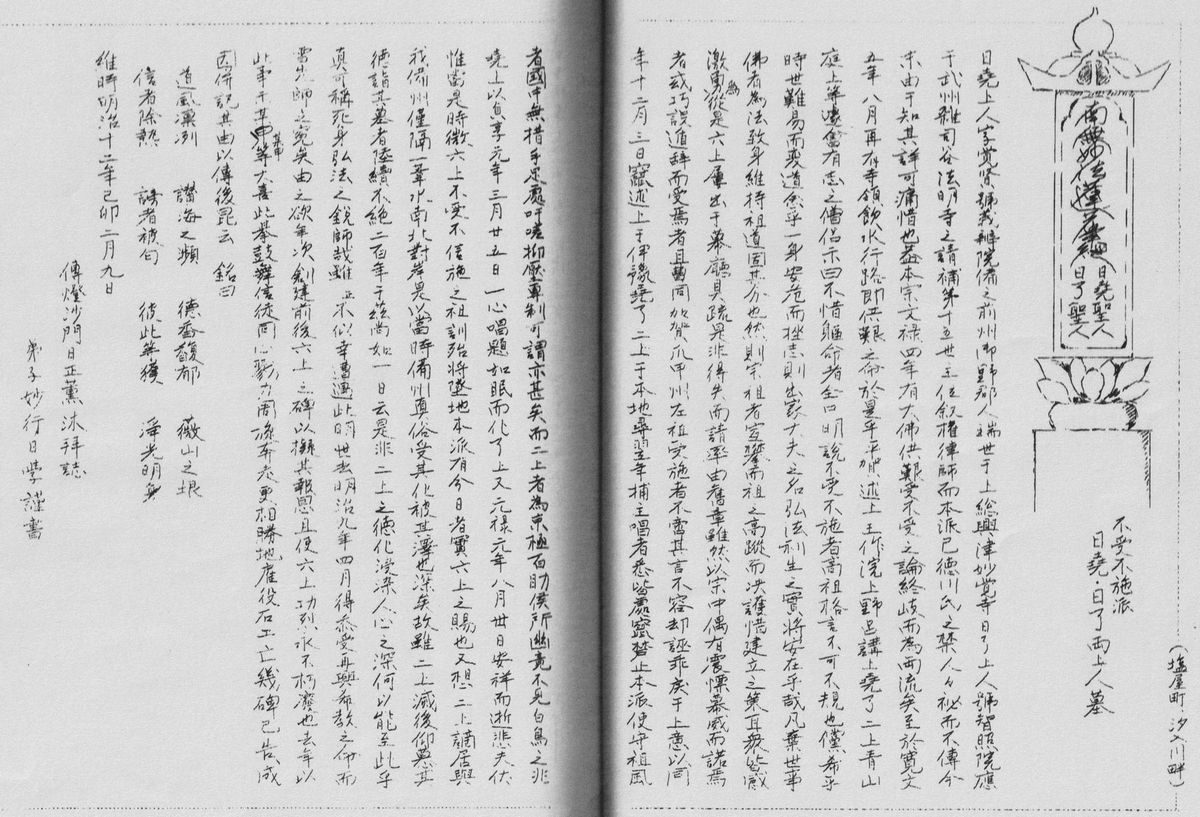 (塩屋町、汐入川畔)
不受不施派
日堯・日了両上人墓
南無妙法蓮華経
日堯聖人
日了聖人
日堯上人字覚 號 院備之前州御野郡人瑞世于上総興津妙覚寺日了上人號智照院應
于武州雜司谷法明寺之請補第十五世主位叙権律師而本派已徳川氏之禁人々祕而不傳今
末由于知其詳可痛惜也 本宗文禄四年有大佛供難受不受之論終岐而為両流矣至於寛文
五年八月再有寺領飲水行路即供難之命於是乎平 述上王作浣上野呂講上堯了二上青山
庭上等 奮有志之僧侶示曰不惜軀命者出口明説不受不施者高祖格言不可不規也儻希乎
時世難易而変道 乎一身安危而挫志則出家大夫之名弘法利生之實将安在乎哉凡棄世事
佛者為法致身維持祖道固其分也然則宗祖者宣 而祖之高蹤而決護惜建立之策耳衆皆感
激勇為従是六上屢出于幕廳具疏是非得失而請率由舊章雖然以宗中偶有震慄幕威而諾焉
者或巧設遁辞而受焉者且曹同加賀爪甲州左袒受施者不審其言不容却誣乖戻于上意以同
年十二月三日竄述上于伊豫堯了二上于本地 翌年捕主唱者悉皆處竄 止本派使守祖風
者國中無措手足處吁嗟抑壓専制可謂亦甚矣而二上者為京極百助侯所幽竟不見白烏之非
堯上以貞享元年三月廿五日一心唱題如眠而化了上又元禄元年八月卅日安祥而逝悲夫伏
惟當是時微六上不受不信施之祖訓殆将墜地本派有今日者實六上之賜也又想二上謫居與
我備州僅隔一葦水南北對岸畏以當時備州真俗受其化被其澤也深矣故雖二上滅後仰 其
徳詣其墓者陸續不絶二百年于茲尚如一日云是非二上之徳化浸染人心之深何以能至此乎
真可称死身弘法之鋭師哉雖 不似幸遭遇此明世去明治九年四月得忝受再興希教之命而
雪先師之寃矣由之欲年次創建前後六上之碑以擬其報恩且使六上功烈永不朽 也去年以
此事于其中等大喜此挙鼓舞信徒同心戮力 更相勝地雇役石工亡幾碑已告成
因併記其由以傳後昆云 銘曰
道風凜冽 讃海之瀕 徳香馥郁 薇山之垠
信者除熱 謗者被 彼此無 淨光明
維時明治十二年己卯二月九日
傳燈沙門日正薫沐拜誌
弟子妙行日學謹書